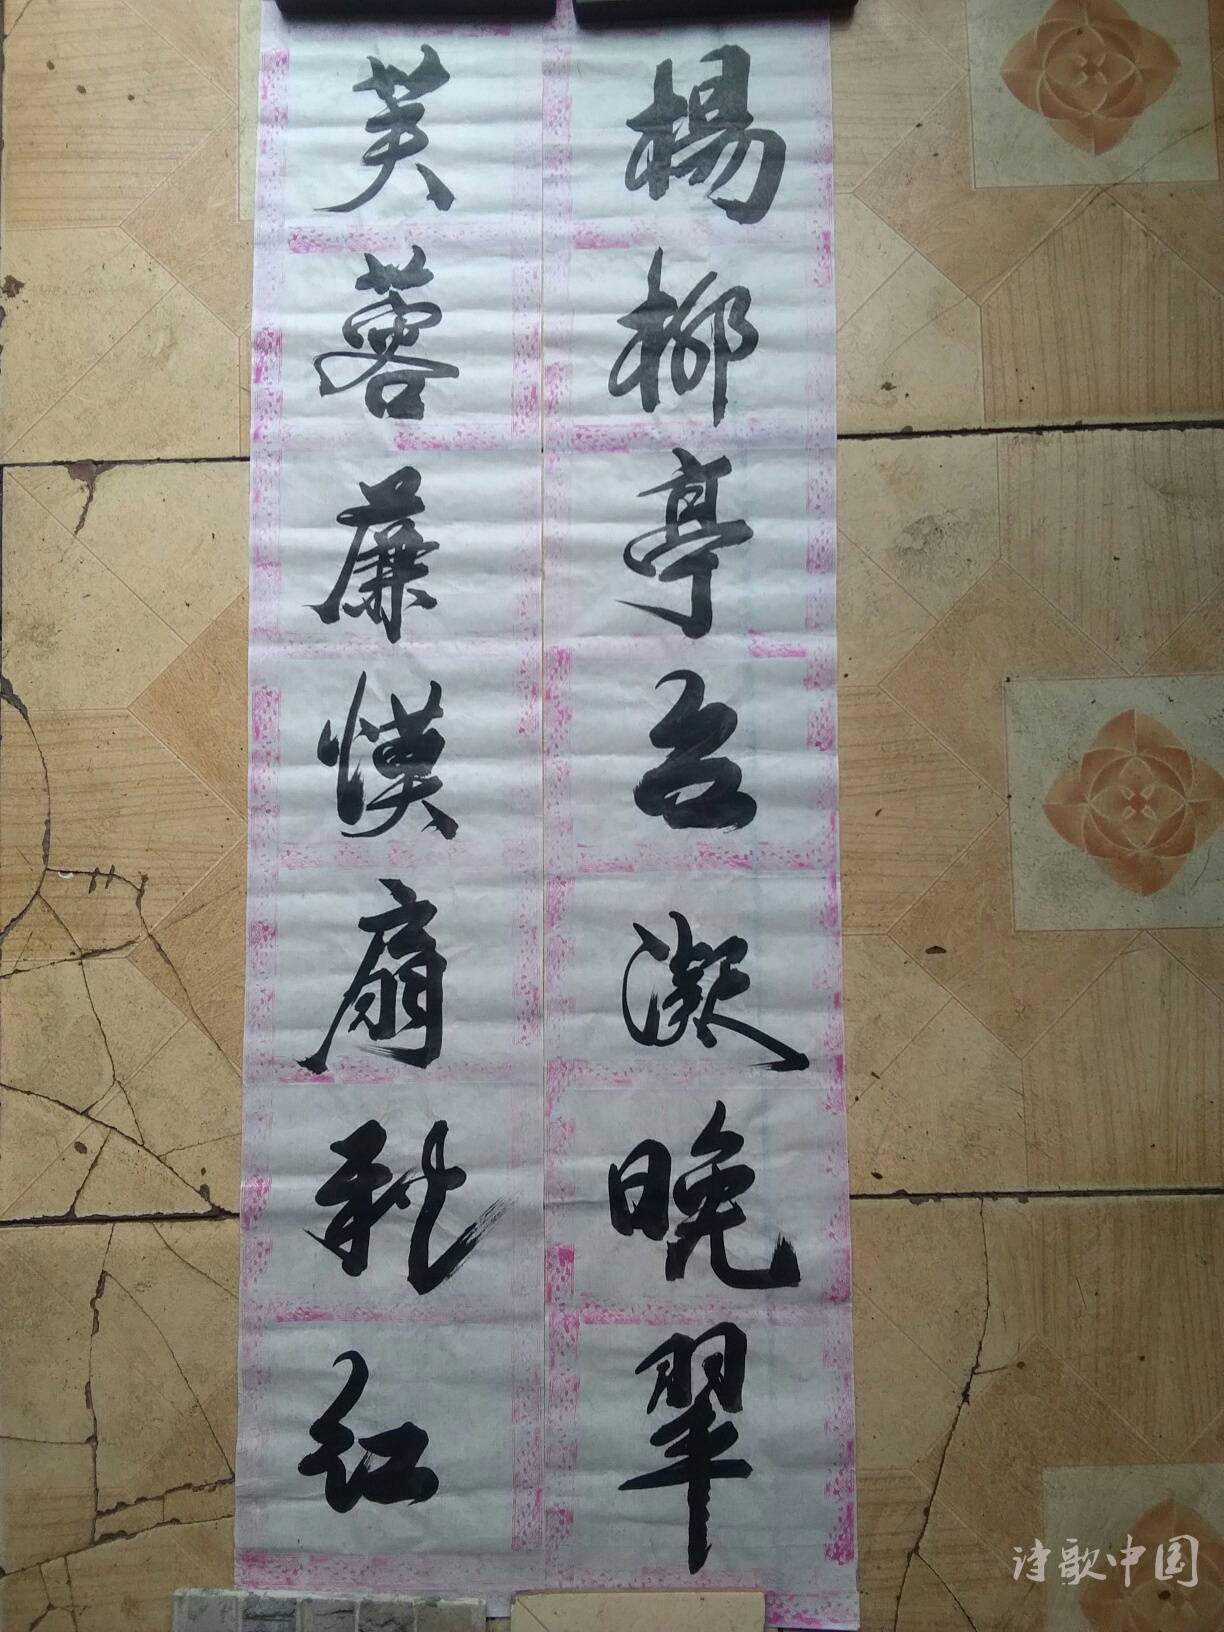 楊柳亭台凝晚翠
芙蓉簾幙扇秋红
诗歌中国